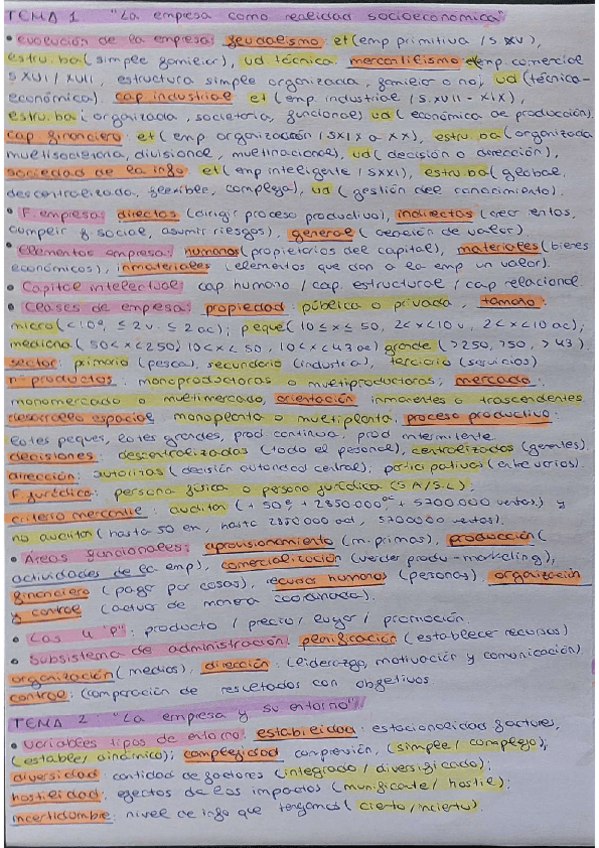 TEMA 1 "La empresa como realidad socioeconomica"
• evolución de la empresa: feudalismo et (emp primitiva / s XV),
estru.ba (simple familiar), ud técnica. mercantilismo et emp. comercial
s XVI / XVII, estructura simple organizada, familiar o no, ud (técnica-
económica). cap. industrial et (emp. industrial / s. XVII - XIX),
estru.ba: organizada, societaria, funcional) ud (económica de producción).
cap. financiero: et (emp. organización / s XIX a XX), estru.ba (organizada
multisocietaria, divisional, multinacional), ud (decisión o dirección),
sociedad de la info: et (emp inteligente / s XXI), estru.ba (global,
descentralizada, flexible, compleja), ud (gestión del conocimiento).
• F. empresa: directas (dirigir proceso productivo), indirectas (crear entos,
cumplir f. social, asumir riesgos), general (creación de valor).
• elementos empresa: humanos (propietarios del capital), materiales (bienes
económicos), inmateriales (elementos que dan a la emp un valor).
• Capital intelectual: cap humano / cap. estructural / cap relacional.
• Clases de empresa: propiedad: pública o privada, tamaño:
micro (< 10º, ≤ 2 v. ≤ 2 ac); peque (10 ≤ x ≤ 50, 2 < x < 10 v, 2 < x < 10 ac);
mediana (50 < x < 250, 10 < x < 50, 10 < x < 43 ac) grande (> 250, > 50, > 43).
sector: primario (pesca), secundario (industria), terciario (servicios)
nº productos: monoproductoras o multiproductoras, mercado:
monomercado o multimercado, orientación inmanentes o trascendentes
desarrollo espacial: monoplanta o multiplanta, proceso productivo:
lotes peques, lotes grandes, prod continua, prod intermitente
decisiones: descentralizadas (todo el personal), centralizadas (gerentes).
dirección: autoritas (decisión autoridad central), participativas (entre varios).
F. jurídica: persona física o persona jurídica (S A / S L).
criterio mercantil: auditan (+ 50º + 2850.000 ac + 5700.000 ventas) y
no auditan (hasta 50 em, hasta 2850000 act, 5700000 ventas).
• Áreas funcionales: aprovisionamiento (m. primas), producción (
actividades de la emp), comercialización (vender produ - marketing),
financiero (pagar por cosas), recursos humanos (personas) organización
y control (actuar de manera coordinada).
• Las 4 "P": producto / precio / lugar / promoción.
• Subsistema de administración: planificación (establecer recursos)
organización (medios), dirección: (liderazgo, motivación y comunicación)
control: (comparación de resultados con objetivos
TEMA 2: "La empresa y su entorno"
• variables tipos de entorno: estabilidad: estacionalidad factores,
(estable / dinámico); complejidad comprensión, (simple / complejo);
diversidad cantidad de factores (integrado / diversificado);
hostilidad: efectos de los impactos (munificente / hostil);
incertidumbre: nivel de info que tengamos (cierto / incierto).